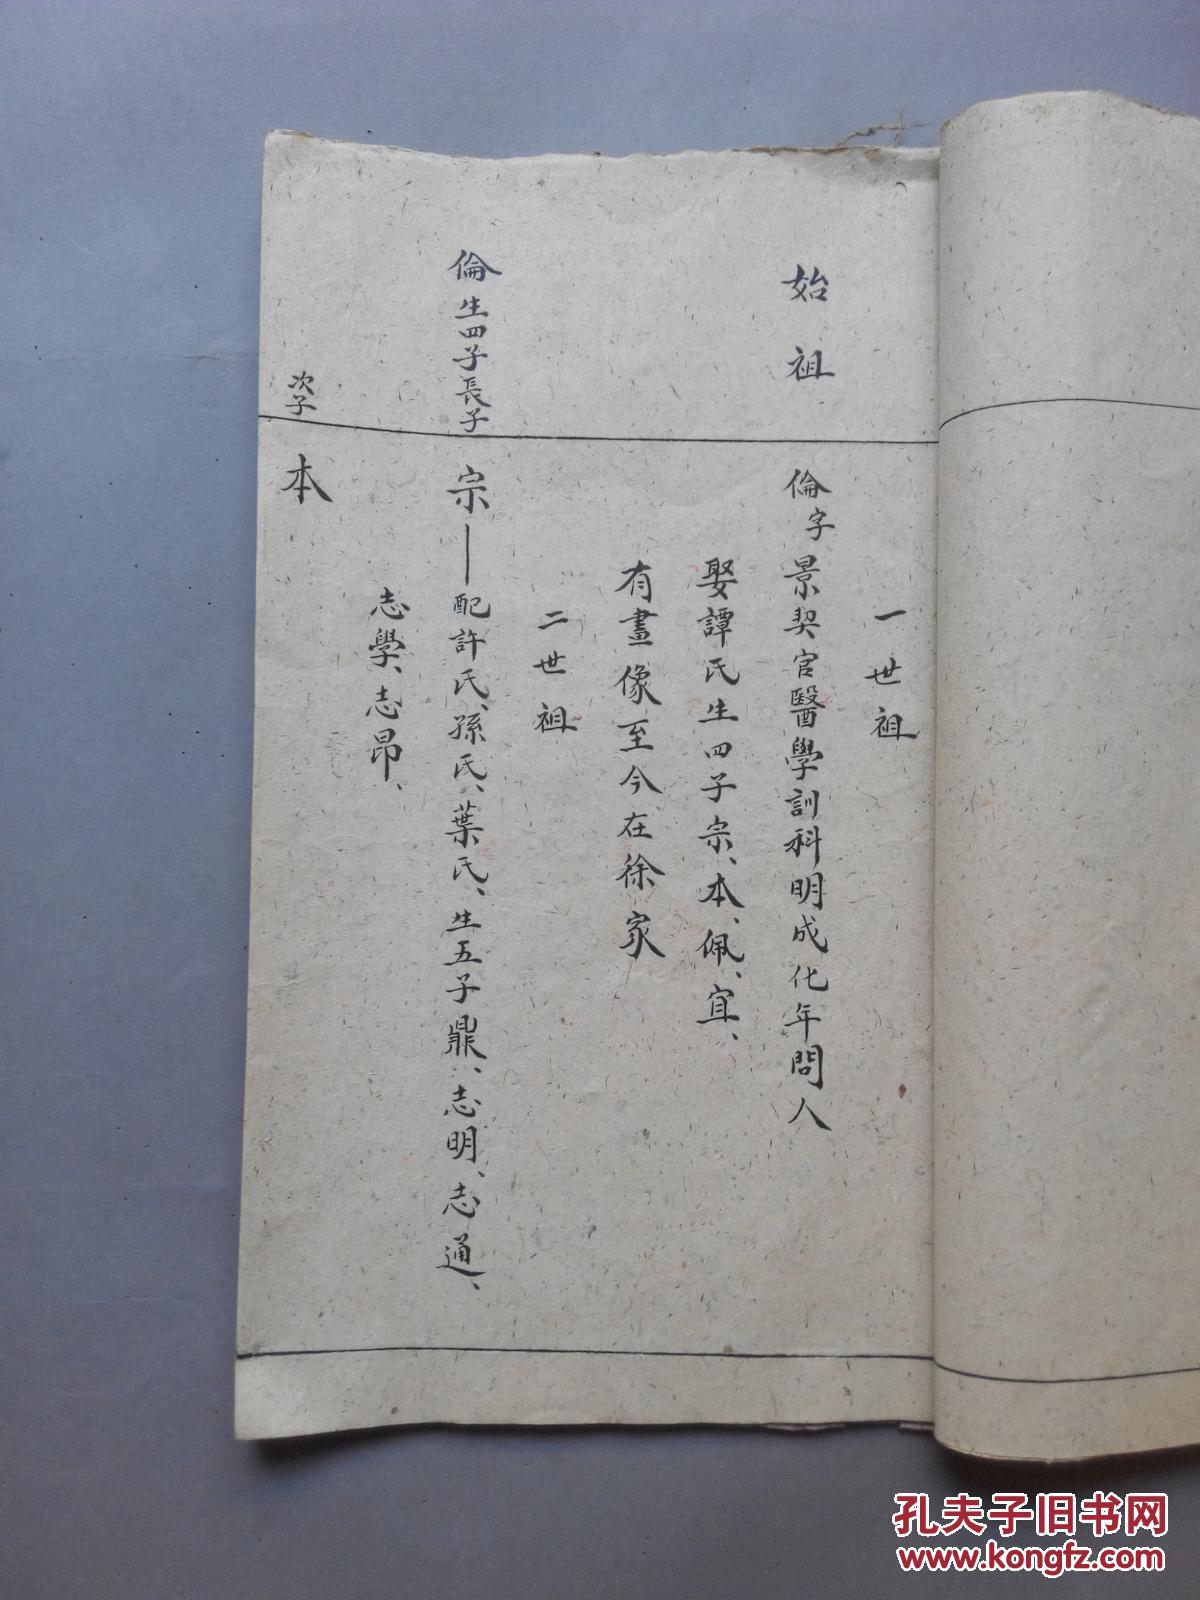 一世祖
始祖
倫字景契官醫學訓科明成化年問人
娶譚氏生四子宗、本、佩、宜、
有畫像至今在徐家
二世祖
倫生四子長子
宗—配許氏、孫氏、葉氏、生五子鼎、志明、志通、
志學、志昂、
次子
本
孔夫子旧书网
www.kongfz.com